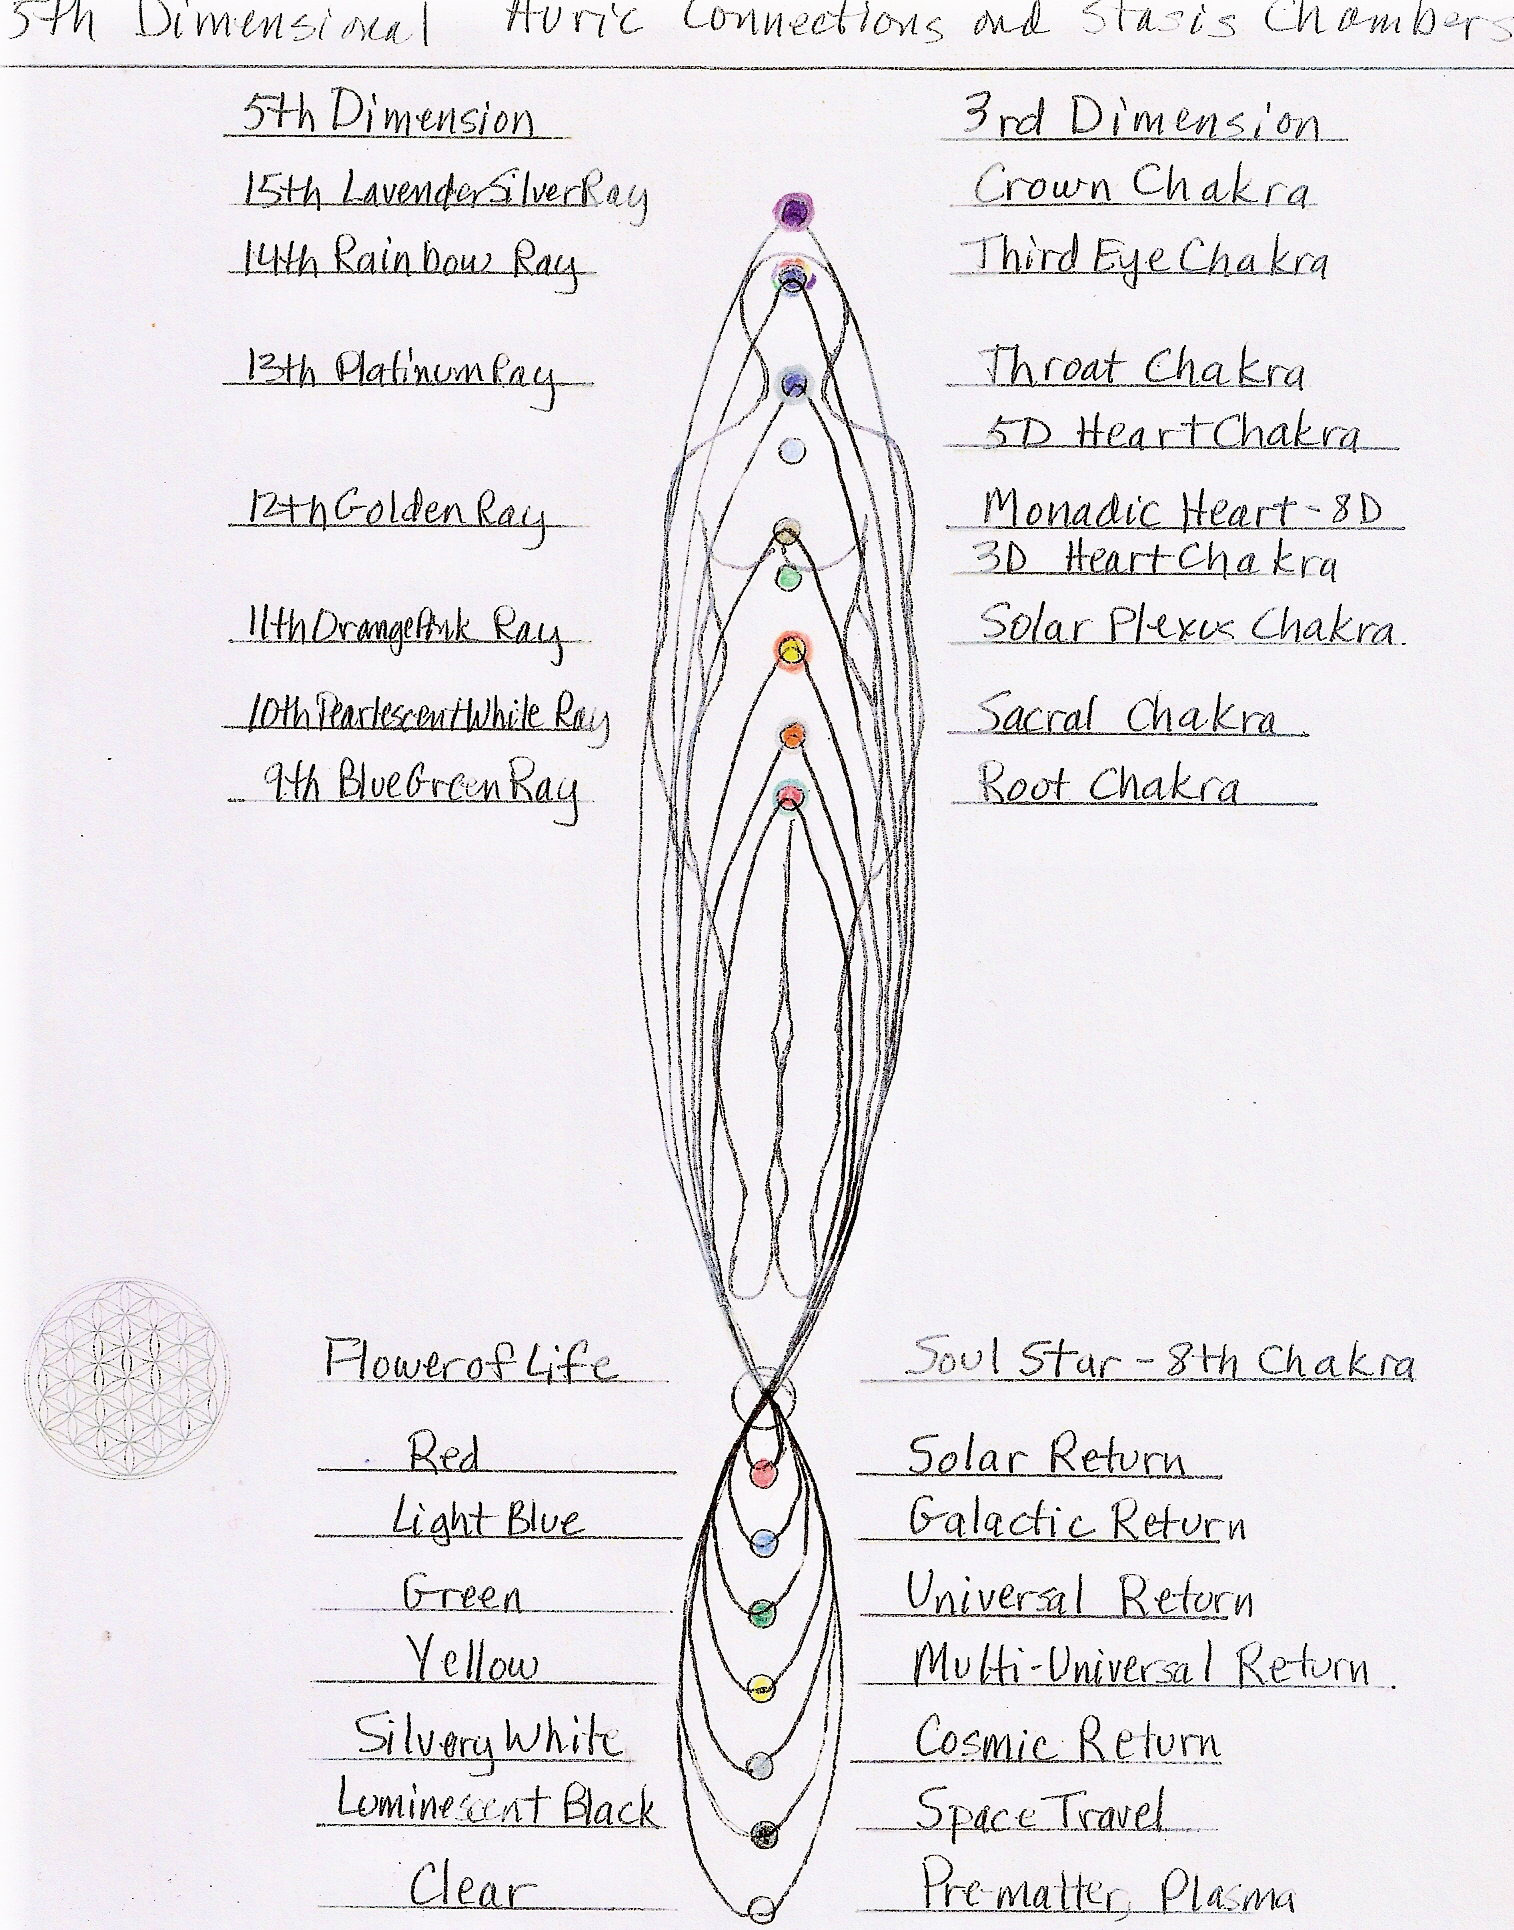 5th Dimensional Auric Connections and Stasis Chambers
5th Dimension 3rd Dimension
15th LavenderSilverRay Crown Chakra
14th Rainbow Ray Third Eye Chakra
13th PlatinumRay Throat Chakra
5D Heart Chakra
12th Golden Ray Monadic Heart-8D
3D Heart Chakra
11th OrangePink Ray Solar Plexus Chakra
10th PearlescentWhite Ray Sacral Chakra
9th BlueGreen Ray Root Chakra
Flower of Life Soul Star-8th Chakra
Red Solar Return
Light Blue Galactic Return
Green Universal Return
Yellow Multi-Universal Return
Silvery White Cosmic Return
Luminescent Black Space Travel
Clear Pre-matter, Plasma